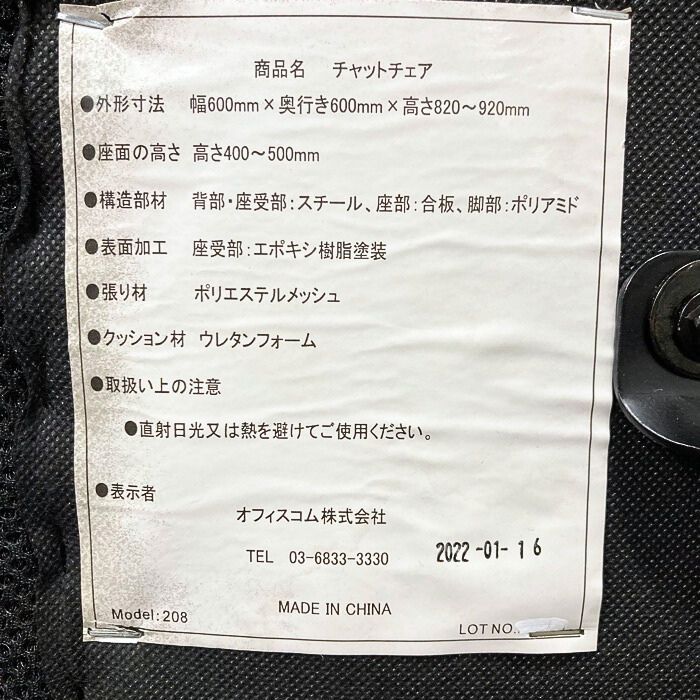 商品名 チャットチェア
●外形寸法 幅600mm×奥行き600mm×高さ820～920mm
●座面の高さ 高さ400～500mm
●構造部材 背部・座受部：スチール、座部：合板、脚部：ポリアミド
●表面加工 座受部：エポキシ樹脂塗装
●張り材 ポリエステルメッシュ
●クッション材 ウレタンフォーム
●取扱い上の注意
●直射日光又は熱を避けてご使用ください。
●表示者
オフィスコム株式会社
TEL 03-6833-3330 2022-01-16
MADE IN CHINA
Model:208
LOT NO.